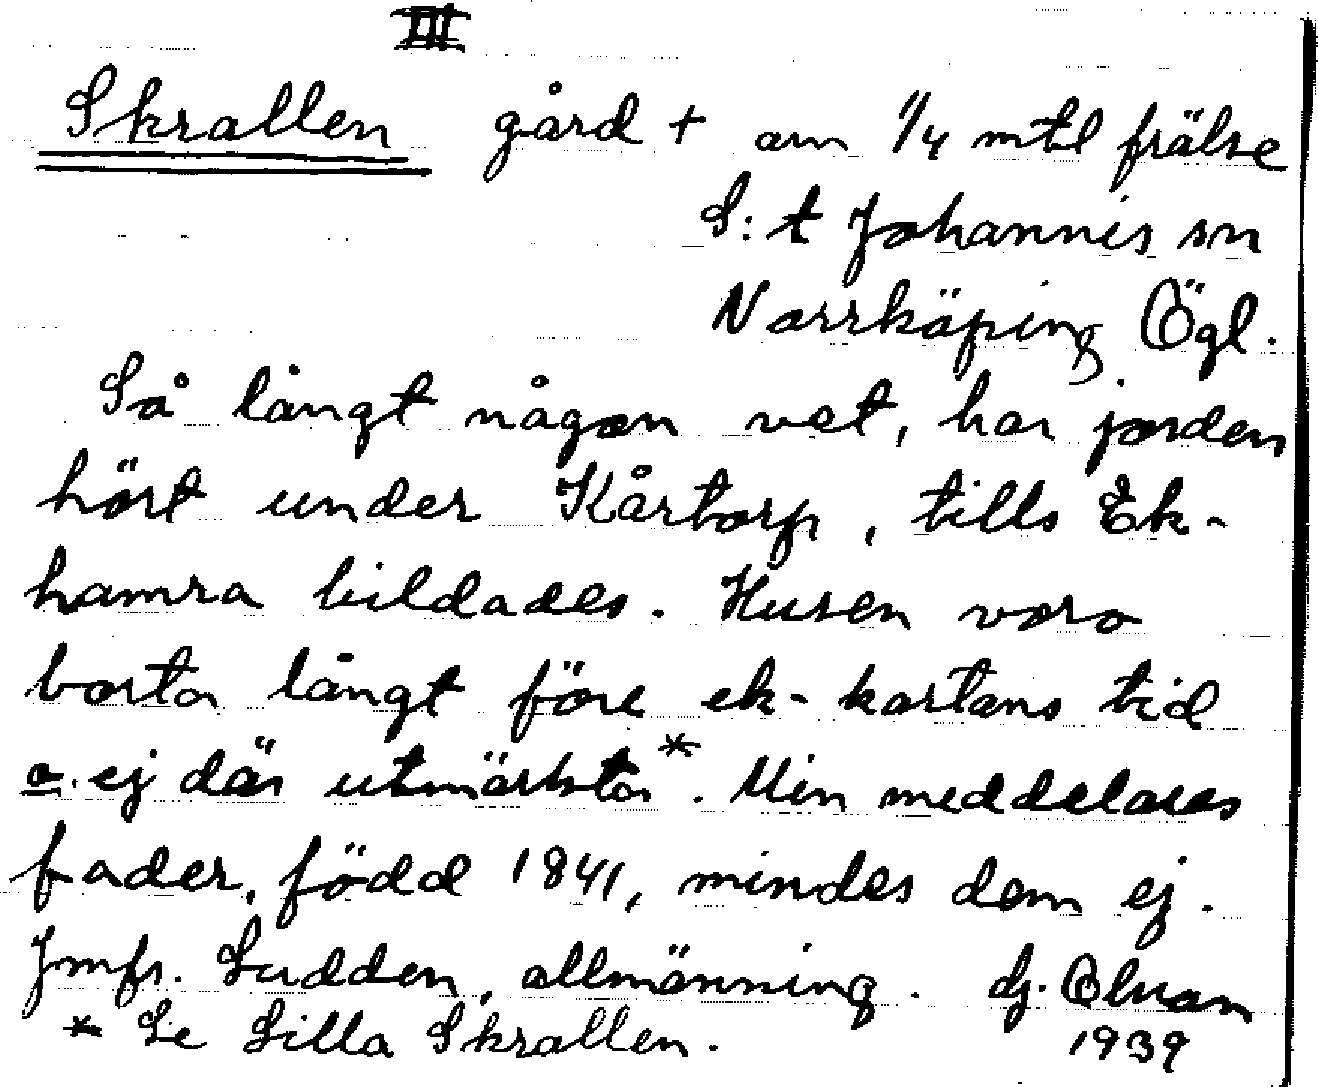 III
Skrallen gård + om 1/4 mtl frälse
S:t Johannis sn
Norrköping Ögl.
Så långt någon vet, har jorden
hört under Kårtorp, tills Ek-
hamra bildades. Husen voro
borta långt före ek-kartans tid
o. ej där utmärkta*. Min meddelares
fader, född 1841, mindes dem ej.
Jmfr. Sudden, allmänning. Hj.
1939
* Se Lilla Skrallen.